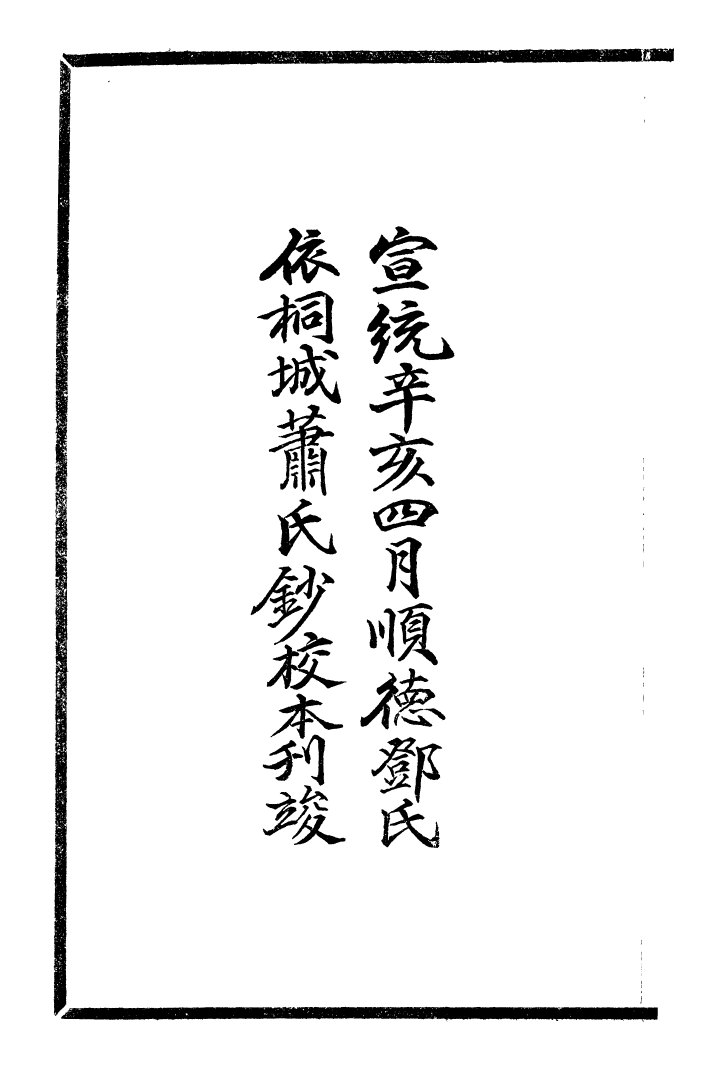 宣統辛亥四月順德鄧氏
依桐城蕭氏鈔校本刊竣